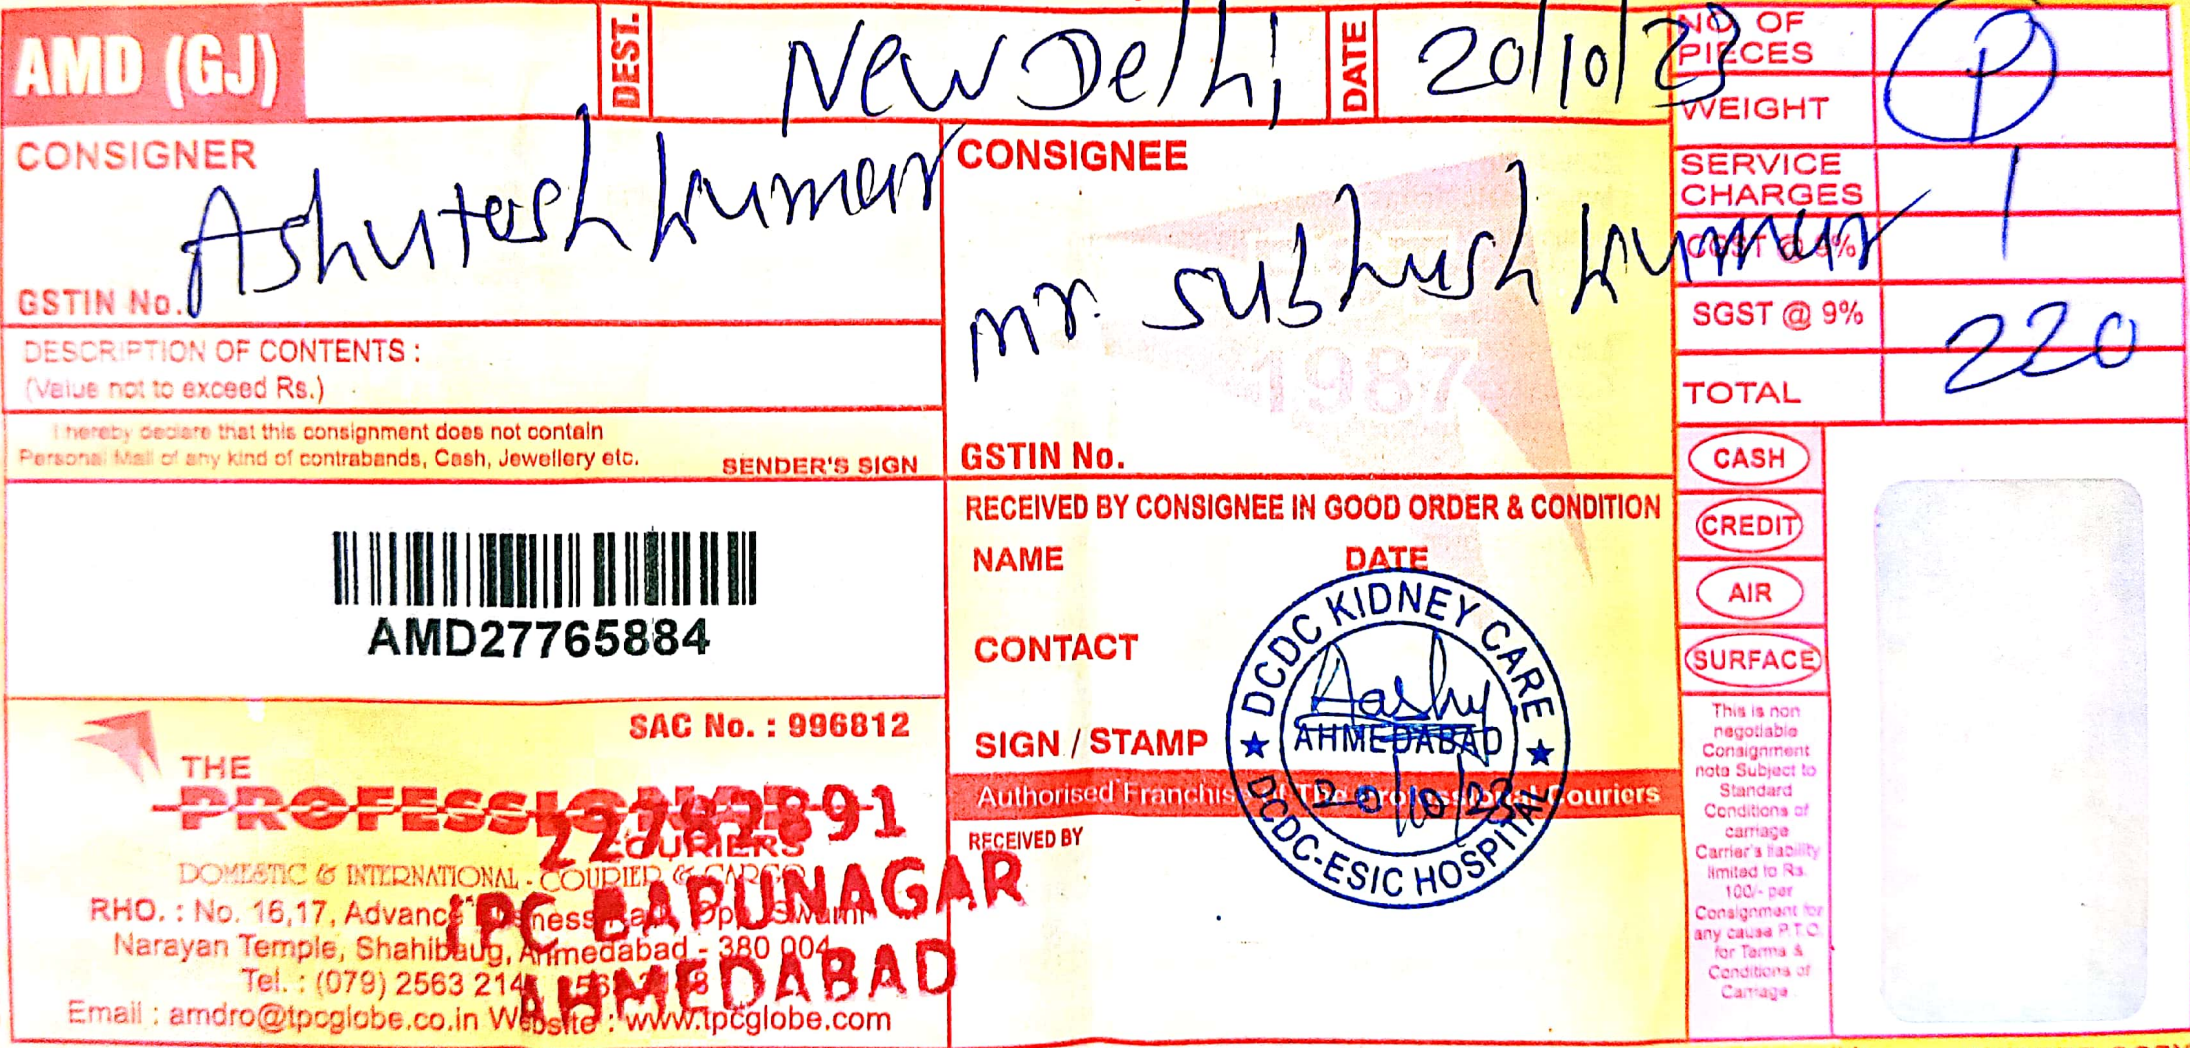 AMD (GJ)
DEST.
New Delhi
DATE
20/10/23
NO. OF PIECES
P
WEIGHT
CONSIGNER
Ashutosh kumar
GSTIN No.
CONSIGNEE
Mr. Subhush kumar
1987
GSTIN No.
SERVICE CHARGES
CGST @ 9%
SGST @ 9%
220
TOTAL
DESCRIPTION OF CONTENTS :
(Value not to exceed Rs.)
I hereby declare that this consignment does not contain
Personal Mail of any kind of contrabands, Cash, Jewellery etc.
SENDER'S SIGN
AMD27765884
RECEIVED BY CONSIGNEE IN GOOD ORDER & CONDITION
NAME
DATE
CONTACT
SIGN / STAMP
DCDC KIDNEY CARE
Aashy
AHMEDABAD
20/10/23
DCDC-ESIC HOSPITAL
Authorised Franchis The Professional Couriers
RECEIVED BY
CASH
CREDIT
AIR
SURFACE
This is non
negotiable
Consignment
note Subject to
Standard
Conditions of
carriage
Carrier's liability
limited to Rs.
100/- per
Consignment for
any cause P.T.O.
for Terms &
Conditions of
Carriage
SAC No. : 996812
THE
PROFESSIONAL
COURIERS
DOMESTIC & INTERNATIONAL - COURIER & CARGO
RHO. : No. 16,17, Advance Business Park, Opp. Swami
Narayan Temple, Shahibaug, Ahmedabad - 380 004
Tel. : (079) 2563 214
Email : amdro@tpcglobe.co.in Website : www.tpcglobe.com
BAPUNAGAR
AHMEDABAD